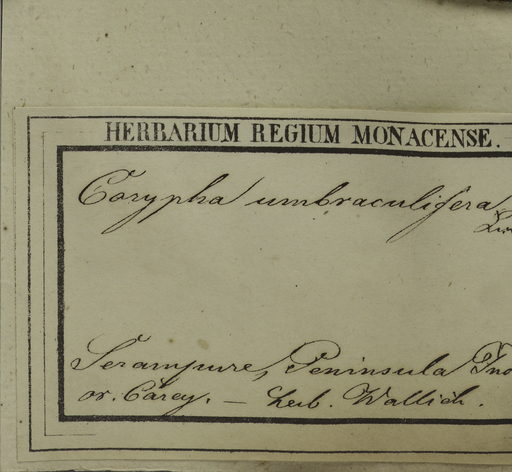 HERBARIUM REGIUM MONACENSE.
Corypha umbraculifera
Serampure, Peninsula Ind
or. Carey. — herb. Wallich.